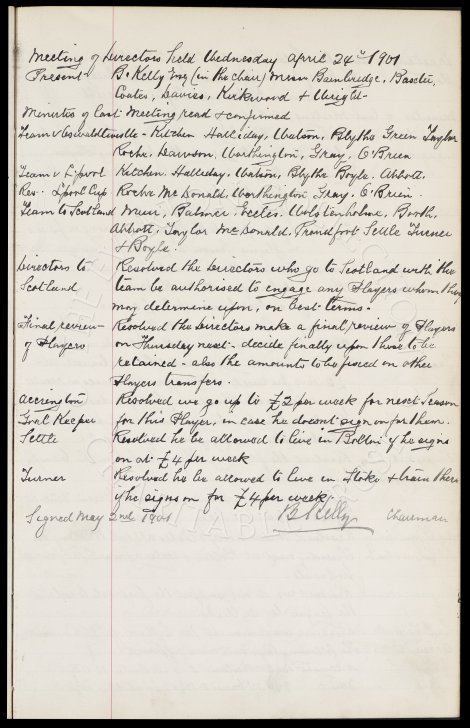 Meeting of Directors held Wednesday April 24th 1901
Present B. Kelly Esq (in the chair) Messrs Bainbridge, Baxter,
Coates, Davies, Kirkwood & Wright-
Minutes of last Meeting read & confirmed
Team v Oswaldtwistle - Kitchen Halliday, Watson, Blythe Green Taylor
Roche, Dawson, Worthington, Gray, O'Brien
Team v L'pool Kitchen, Halliday, Watson, Blythe Boyle, Abbott,
Res. L'pool Cup Roche McDonald, Worthington Gray, O'Brien.
Team to Scotland Muir, Balmer, Eccles, Wolstenholme, Booth,
Abbott, Taylor McDonald, Proudfoot Settle Turner
& Boyle.
Directors to Resolved the Directors who go to Scotland with the
Scotland team be authorised to engage any Players whom they
may determine upon, on best terms.
Final review Resolved the Directors make a final review of Players
of Players on Thursday next - decide finally upon those to be
retained - also the amounts to be fixed on other
Players transfers.
Accrington Resolved we go up to £2 per week for next Season
Goal Keeper for this Player, in case he doesnt sign on for them.
Settle Resolved he be allowed to live in Bolton if he signs
on at £4 per week
Turner Resolved he be allowed to live in Stoke & train there
if he signs on for £4 per week.
Signed May 2nd 1901 B Kelly Chairman